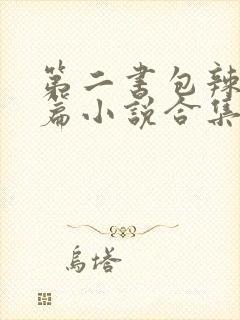 第二书包辣
篇小说合集
乌塔